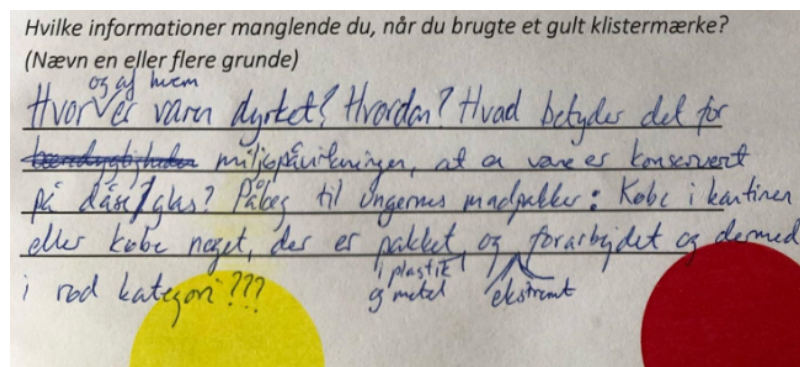 Hvilke informationer manglende du, når du brugte et gult klistermærke?
(Nævn en eller flere grunde)
og af hvem
Hvor er varen dyrket? Hvordan? Hvad betyder det for
bæredygtigheden miljøpåvirkningen, at en vare er konserveret
på dåse/glas? Pålæg til ungernes madpakker: Købe i kantinen
eller købe noget, der er pakket og forarbejdet og dermed
i plastik ekstremt
og metal
i rød kategori???